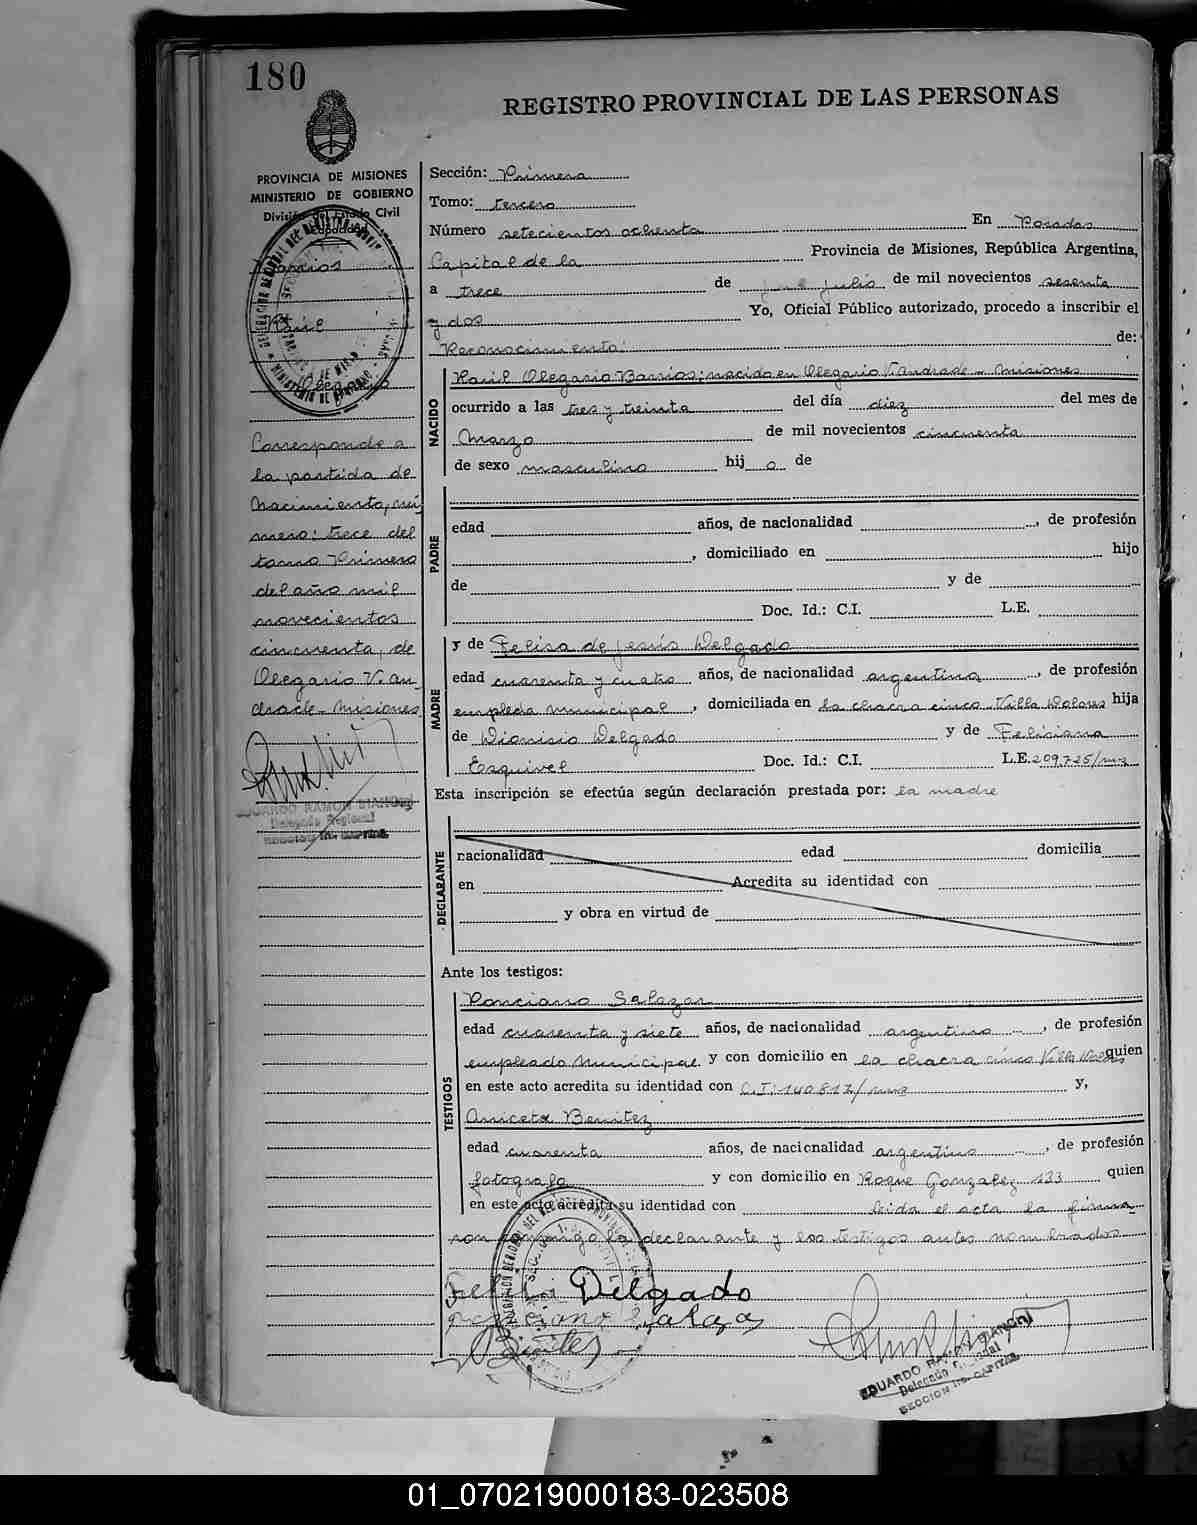 180
REGISTRO PROVINCIAL DE LAS PERSONAS
PROVINCIA DE MISIONES
MINISTERIO DE GOBIERNO
División del Estado Civil
y Capacidad
Barrios
Raúl
Olegario
Corresponde a
la partida de
Nacimiento, nú-
mero: trece del
tomo Primero
del año mil
novecientos
cincuenta, de
Olegario V. An-
drade - Misiones
EDUARDO RAMON BIANCHI
Delegado Regional
SECCION 1ra. CAPITAL
Sección: Primera
Tomo: tercero
Número setecientos ochenta En Posadas
Capital de la Provincia de Misiones, República Argentina,
a trece de julio de mil novecientos sesenta
y dos Yo, Oficial Público autorizado, procedo a inscribir el
Reconocimiento: de:
NACIDO
Raúl Olegario Barrios; nacido en Olegario V. Andrade - Misiones
ocurrido a las tres y treinta del día diez del mes de
Marzo de mil novecientos cincuenta
de sexo masculino hij o de
PADRE
edad años, de nacionalidad , de profesión
, domiciliado en hijo
de y de
Doc. Id.: C.I. L.E.
MADRE
y de Felisa de Jesús Delgado
edad cuarenta y cuatro años, de nacionalidad argentina , de profesión
empleda municipal , domiciliada en la chacra cinco - Villa Dolores hija
de Dionisio Delgado y de Feliciana
Esquivel Doc. Id.: C.I. L.E. 209.725/mnes
Esta inscripción se efectúa según declaración prestada por: la madre
DECLARANTE
nacionalidad edad domicilia
en Acredita su identidad con
y obra en virtud de
Ante los testigos:
TESTIGOS
Ponciano Salazar
edad cuarenta y siete años, de nacionalidad argentino , de profesión
empleado municipal y con domicilio en la chacra cinco Villa Dolores quien
en este acto acredita su identidad con C.I: 140812/mnes y,
Aniceto Benitez
edad cuarenta años, de nacionalidad argentino , de profesión
fotografo y con domicilio en Roque Gonzalez 133 quien
en este acto acredita su identidad con leida el acta la firma
con conmigo la declarante y los testigos antes nombrados
Felisa Delgado
Ponciano Salazar
Benitez
EDUARDO RAMON BIANCHI
Delegado Regional
SECCION 1ra. CAPITAL
01_070219000183-023508